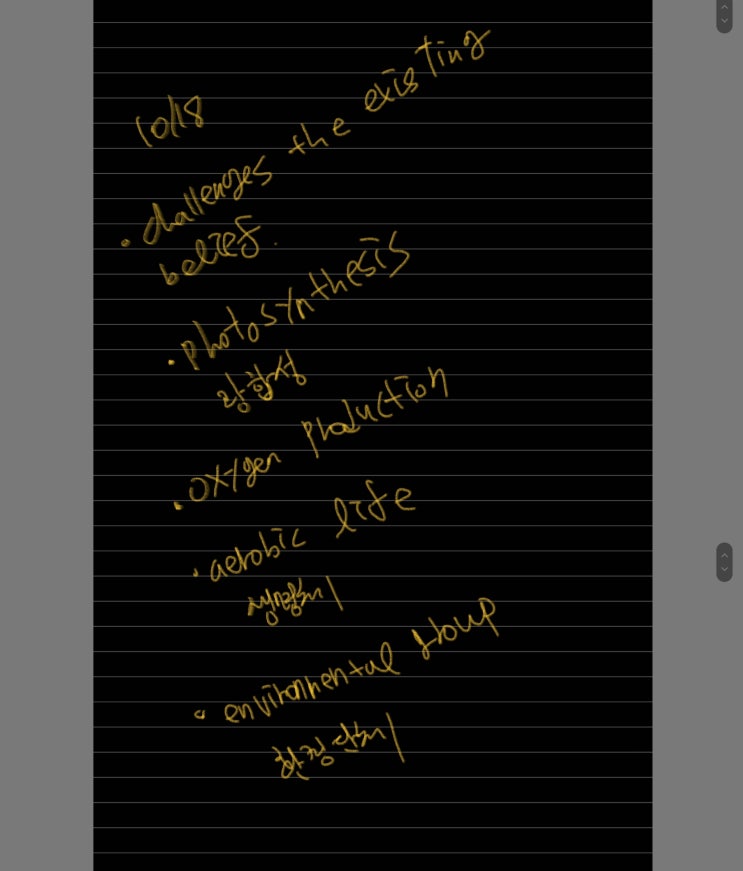 10/18
• challenges the existing
belief.
• photosynthesis
광합성
• oxygen production
• aerobic life
• environmental group
환경단체